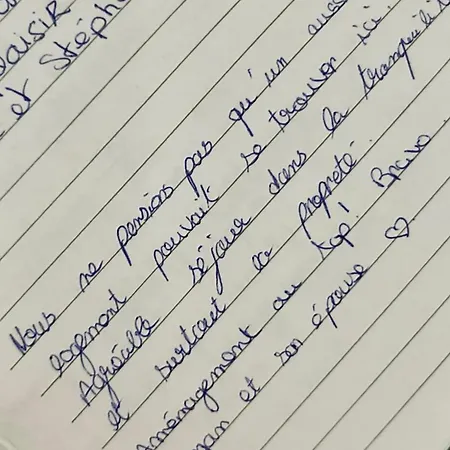 et Stéph
Nous ne pensions pas qu'un
logement pouvait se trouver ici.
Agréable séjour dans la tranquilit
et surtout la propreté.
Aménagement au top! Bravo
et son épouse ♡.